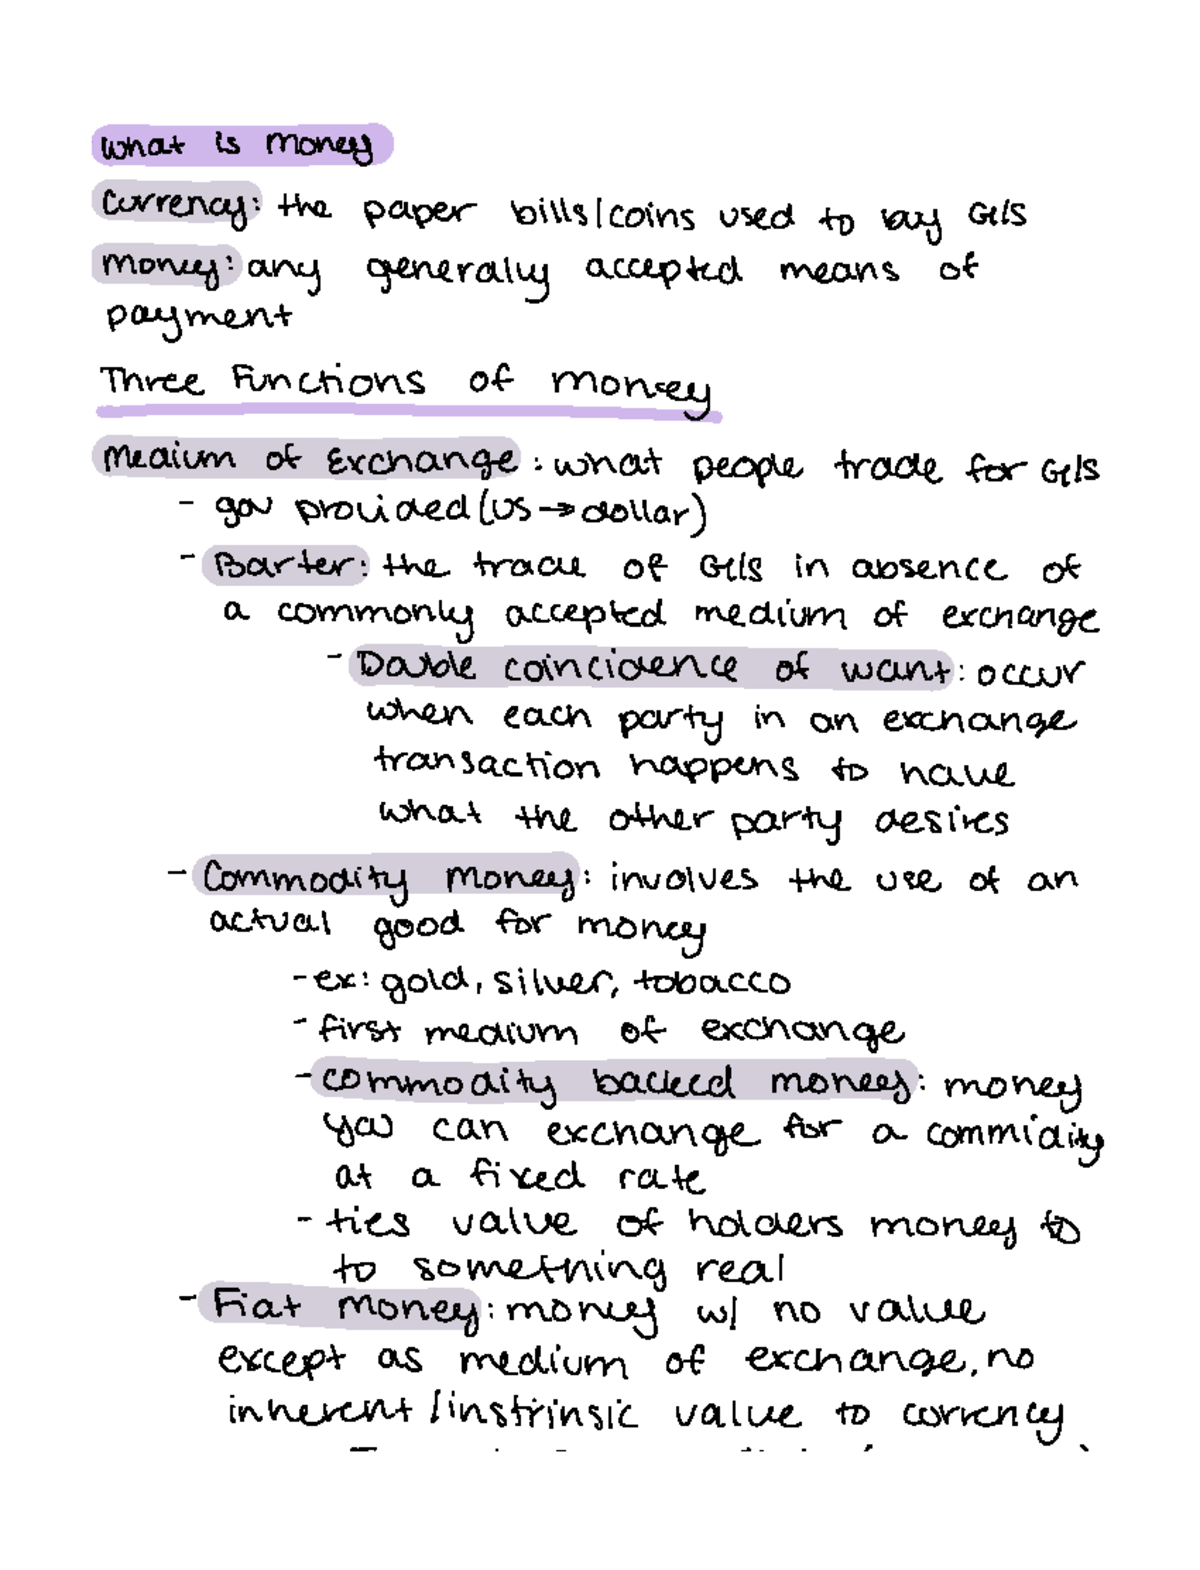 What is Money
Currency: the paper bills/coins used to buy G/S
Money: any generally accepted means of
payment
Three Functions of Money
Medium of Exchange: what people trade for G/S
- gov provided (US → dollar)
- Barter: the trade of G/S in absence of
a commonly accepted medium of exchange
- Double coincidence of want: occur
when each party in an exchange
transaction happens to have
what the other party desires
- Commodity Money: involves the use of an
actual good for money
- ex: gold, silver, tobacco
- first medium of exchange
- commodity backed money: money
you can exchange for a commidity
at a fixed rate
- ties value of holders money to
to something real
- Fiat Money: money w/ no value
except as medium of exchange, no
inherent/instrinsic value to currency